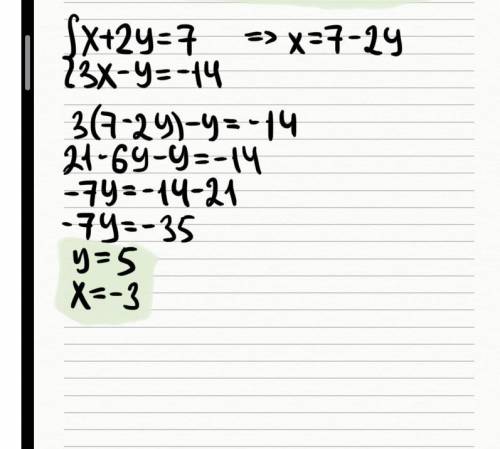 {x+2y=7 => x=7-2y
{3x-y=-14
3(7-2y)-y=-14
21-6y-y=-14
-7y=-14-21
-7y=-35
y=5
x=-3